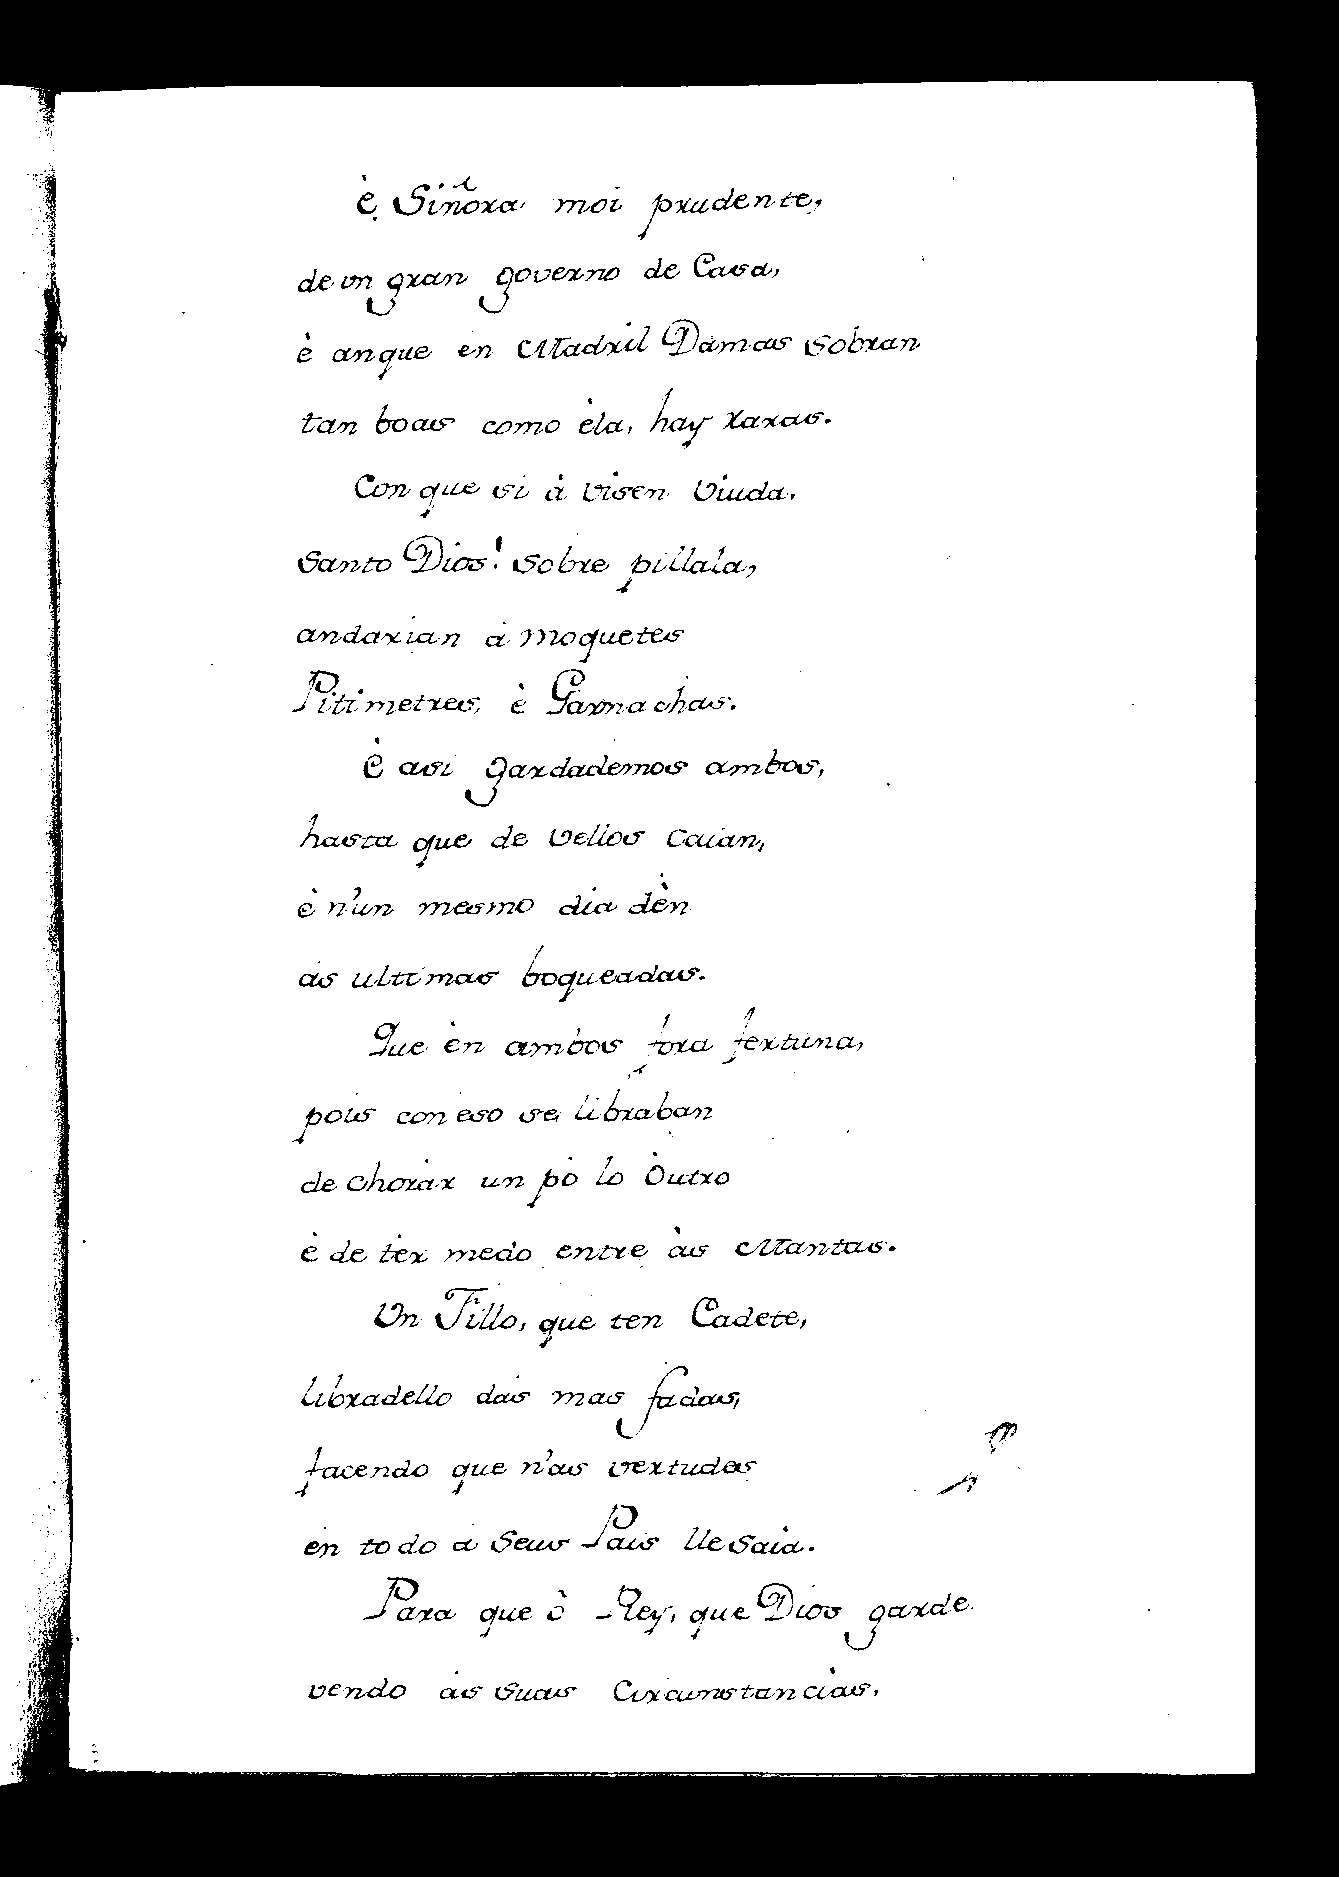 è Siñora moi prudente,
de un gran governo de Casa,
è anque en Madril Damas sobran
tan boas como èla, hay raras.
Con que si à visen viuda,
Santo Dios! sobre pillala,
andarian à moquetes
Pitimetres, è Garnachas.
È asi gardademos ambos,
hasta que de vellos caian,
è n'un mesmo dia dèn
as ultimas boqueadas.
Que èn ambos fora fertuna,
pois con eso se libraban
de chorar un pò lo òutro
è de ter medo entre às Mantas.
Un Fillo, que ten Cadete,
libradello das mas fadas,
facendo que n'as vertudes
en todo a seus Pais lle saia.
Para que ò Rey, que Dios garde
vendo as suas circunstancias,